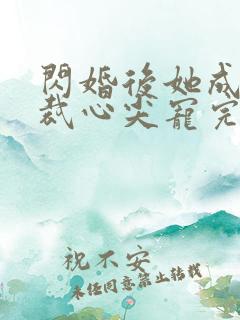 閃婚後她成
裁心尖寵完
祝不安
未經同意禁止轉載